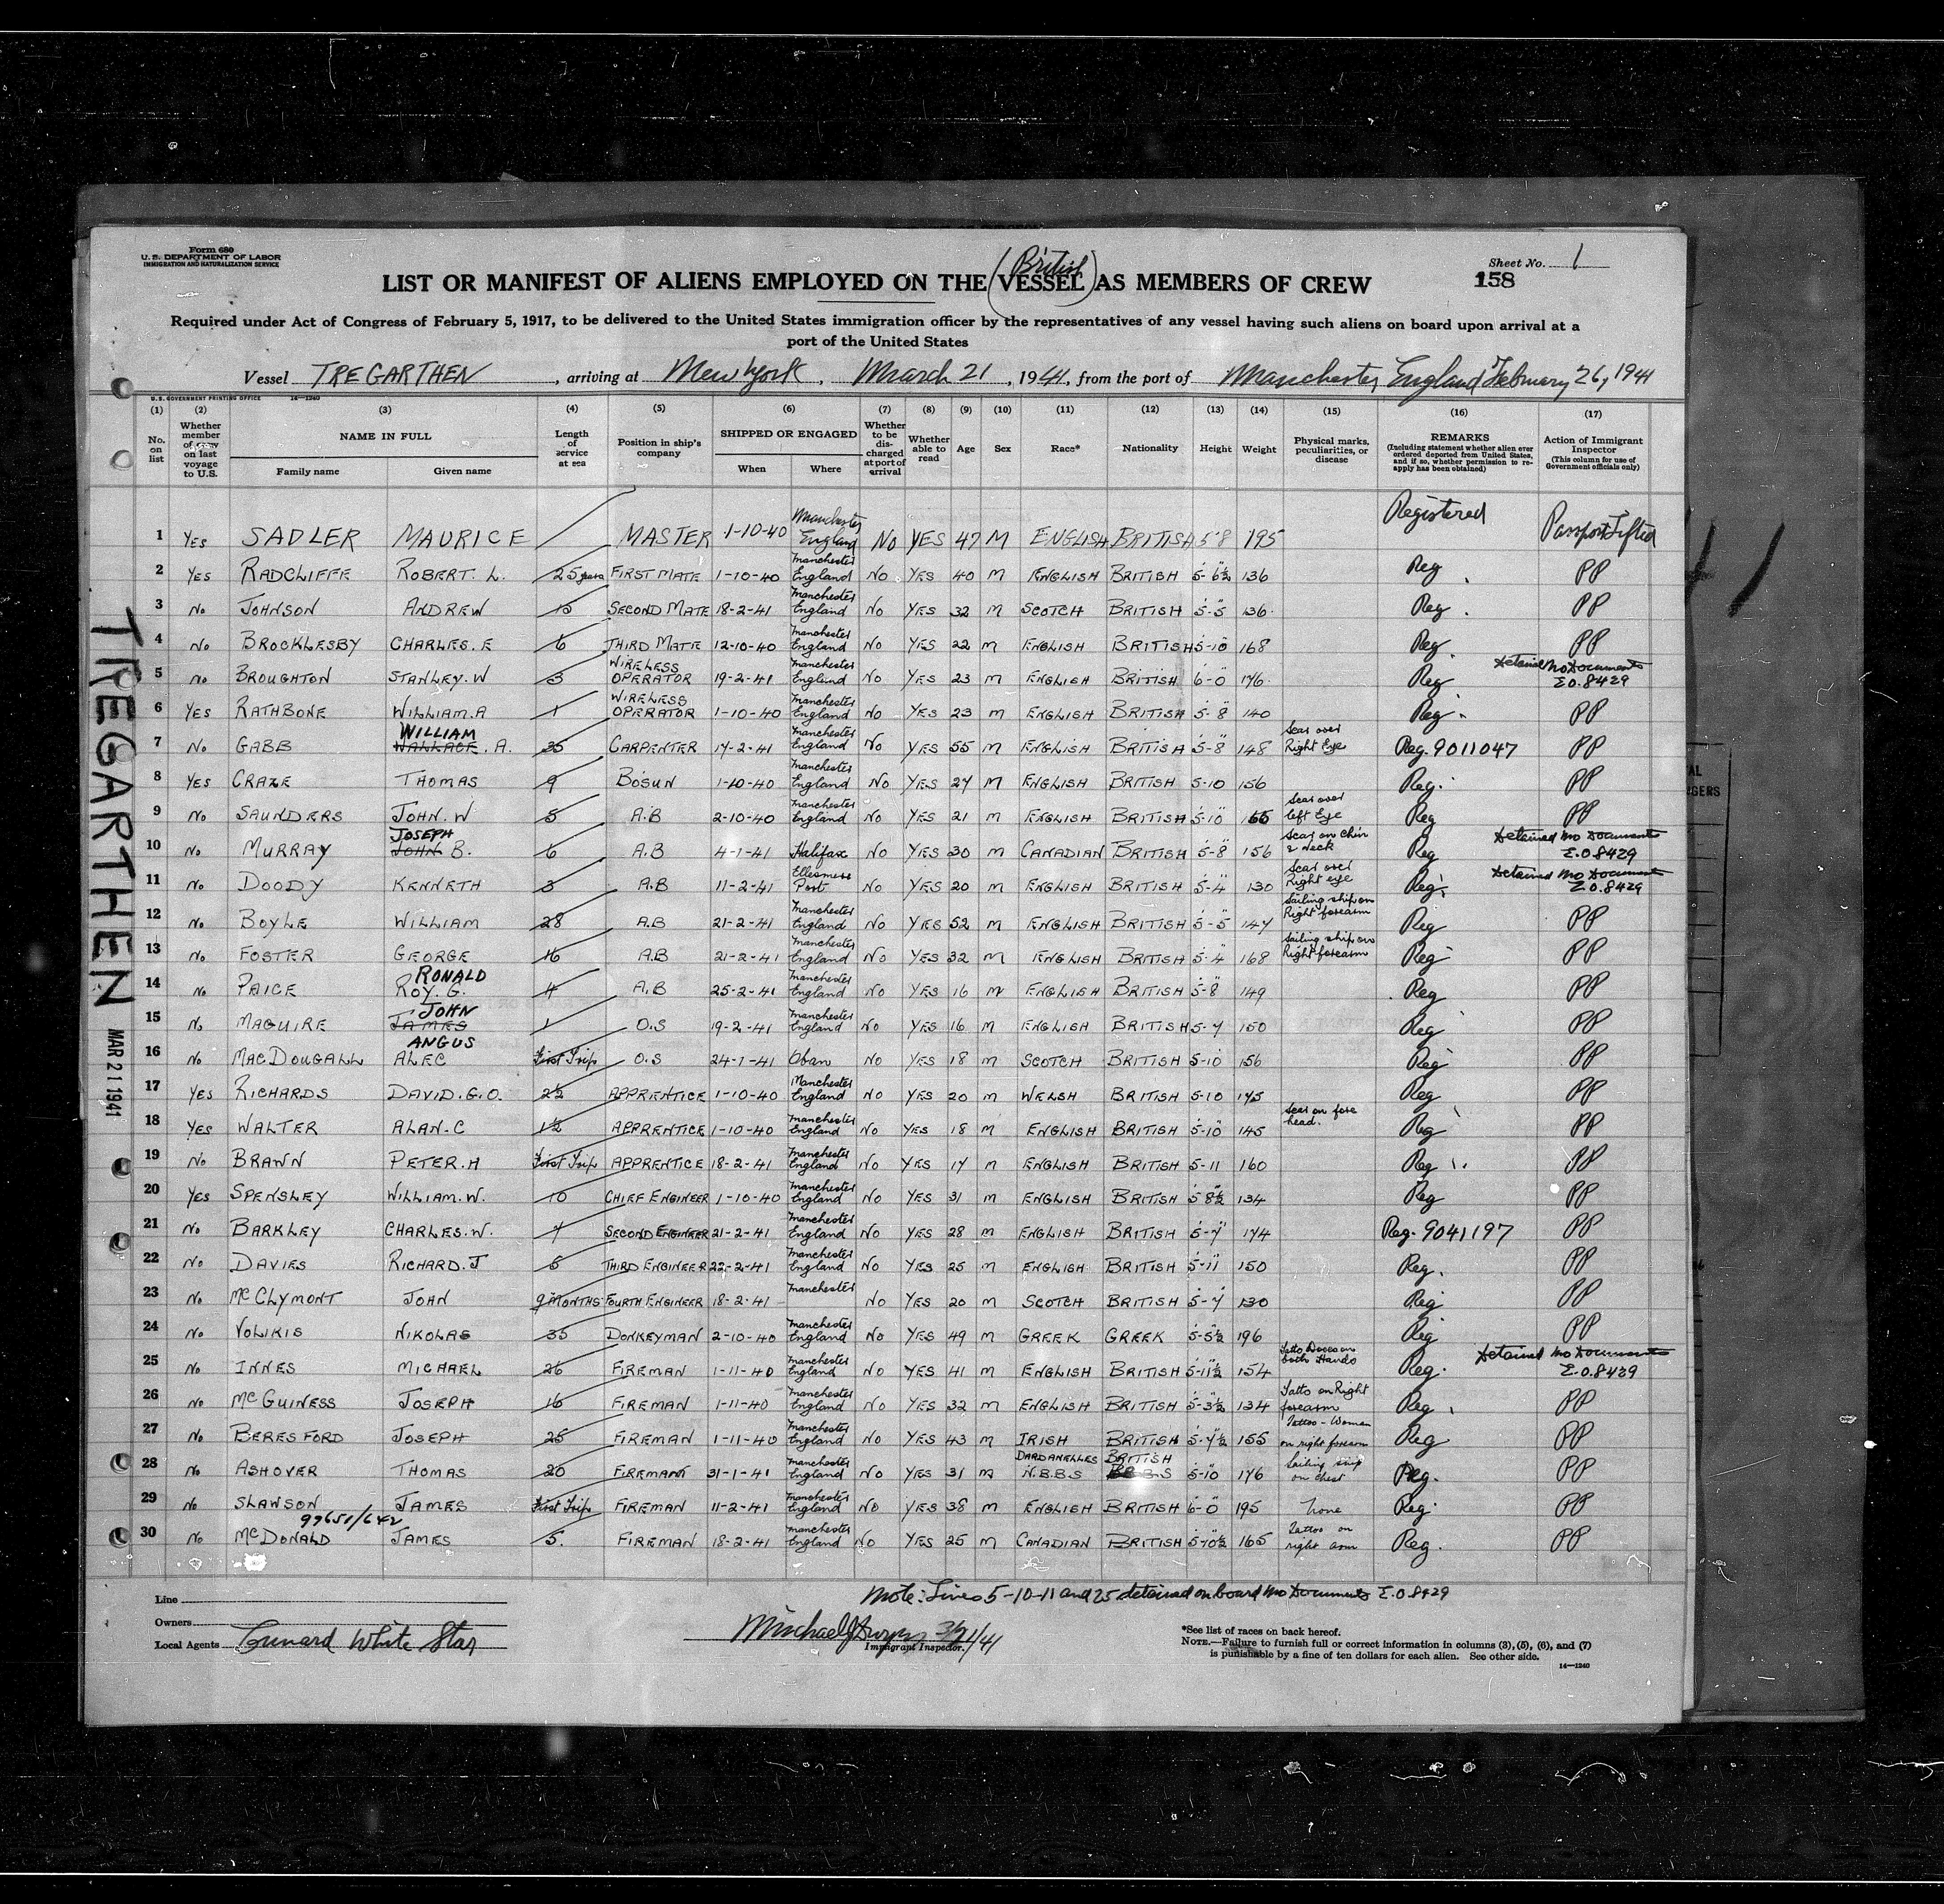 Form 680
U. S. DEPARTMENT OF LABOR
IMMIGRATION AND NATURALIZATION SERVICE
Sheet No. 1
158
LIST OR MANIFEST OF ALIENS EMPLOYED ON THE (British VESSEL) AS MEMBERS OF CREW
Required under Act of Congress of February 5, 1917, to be delivered to the United States immigration officer by the representatives of any vessel having such aliens on board upon arrival at a
port of the United States
Vessel TREGARTHEN, arriving at New York, March 21, 1941, from the port of Manchester England February 26, 1941
U. S. GOVERNMENT PRINTING OFFICE 14-1240
(1) (2) (3) (4) (5) (6) (7) (8) (9) (10) (11) (12) (13) (14) (15) (16) (17)
No. on list
Whether member of crew on last voyage to U.S.
NAME IN FULL
Family name Given name
Length of service at sea
Position in ship's company
SHIPPED OR ENGAGED
When Where
Whether to be discharged at port of arrival
Whether able to read
Age Sex Race* Nationality Height Weight
Physical marks, peculiarities, or disease
REMARKS
(Including statement whether alien ever ordered deported from United States, and if so, whether permission to reapply has been obtained)
Action of Immigrant Inspector
(This column for use of Government officials only)
1 YES SADLER MAURICE MASTER 1-10-40 Manchester England No YES 47 M ENGLISH BRITISH 5-8 195 Registered Passport Lifted
2 YES RADCLIFFE ROBERT. L. 25 years FIRST MATE 1-10-40 Manchester England No YES 40 M ENGLISH BRITISH 5-6½ 136 Reg. PP
3 No JOHNSON ANDREW 15 SECOND MATE 18-2-41 Manchester England No YES 32 M SCOTCH BRITISH 5-5 136 Reg. PP
4 No BROCKLESBY CHARLES. E 6 THIRD MATE 12-10-40 Manchester England No YES 22 M ENGLISH BRITISH 5-10 168 Reg. PP
5 No BROUGHTON STANLEY. W 3 WIRELESS OPERATOR 19-2-41 Manchester England No YES 23 M ENGLISH BRITISH 6-0 176 Reg Detained No Documents E.O. 8429
6 YES RATHBONE WILLIAM. A 1 WIRELESS OPERATOR 1-10-40 Manchester England No YES 23 M ENGLISH BRITISH 5-8 140 Reg. PP
7 No GABB WILLIAM WALLACE. A. 35 CARPENTER 17-2-41 Manchester England No YES 55 M ENGLISH BRITISH 5-8 148 Scar over Right Eye Reg. 9011047 PP
8 YES CRAZE THOMAS 9 BOSUN 1-10-40 Manchester England No YES 27 M ENGLISH BRITISH 5-10 156 Reg. PP
9 No SAUNDERS JOHN. W 5 A.B 2-10-40 Manchester England No YES 21 M ENGLISH BRITISH 5-10 165 Scar over left Eye Reg PP
10 No MURRAY JOSEPH JOHN B. 6 A.B 4-1-41 Halifax No YES 30 M CANADIAN BRITISH 5-8 156 Scar on Chin & neck Reg Detained No Documents E.O. 8429
11 No DOODY KENNETH 3 A.B 11-2-41 Ellesmere Port No YES 20 M ENGLISH BRITISH 5-4 130 Scar over Right eye Reg. Detained No Documents E.O. 8429
12 No BOYLE WILLIAM 28 A.B 21-2-41 Manchester England No YES 52 M ENGLISH BRITISH 5-5 147 Sailing ship on Right forearm Reg PP
13 No FOSTER GEORGE 16 A.B 21-2-41 Manchester England No YES 32 M ENGLISH BRITISH 5-4 168 Sailing ship on Right forearm Reg PP
14 No PAICE RONALD ROY. G. 4 A.B 25-2-41 Manchester England No YES 16 M ENGLISH BRITISH 5-8 149 Reg PP
15 No MAGUIRE JOHN JAMES 1 O.S 19-2-41 Manchester England No YES 16 M ENGLISH BRITISH 5-7 150 Reg PP
16 No MACDOUGALL ANGUS ALEC First Trip O.S 24-1-41 Oban No YES 18 M SCOTCH BRITISH 5-10 156 Reg PP
17 YES RICHARDS DAVID. G. O. 2½ APPRENTICE 1-10-40 Manchester England No YES 20 M WELSH BRITISH 5-10 175 Reg PP
18 YES WALTER ALAN. C 1½ APPRENTICE 1-10-40 Manchester England No YES 18 M ENGLISH BRITISH 5-10 145 Scar on fore head. Reg PP
19 No BRAWN PETER. H First Trip APPRENTICE 18-2-41 Manchester England No YES 17 M ENGLISH BRITISH 5-11 160 Reg PP
20 YES SPENSLEY WILLIAM. W. 10 CHIEF ENGINEER 1-10-40 Manchester England No YES 31 M ENGLISH BRITISH 5-8½ 134 Reg PP
21 No BARKLEY CHARLES. W. 7 SECOND ENGINEER 21-2-41 Manchester England No YES 28 M ENGLISH BRITISH 5-7 174 Reg. 9041197 PP
22 No DAVIES RICHARD. J 5 THIRD ENGINEER 22-2-41 Manchester England No YES 25 M ENGLISH BRITISH 5-11 150 Reg. PP
23 No McCLYMONT JOHN 9 MONTHS FOURTH ENGINEER 18-2-41 Manchester No YES 20 M SCOTCH BRITISH 5-7 130 Reg PP
24 No VOLIKIS NIKOLAS 35 DONKEYMAN 2-10-40 Manchester England No YES 49 M GREEK GREEK 5-5½ 196 Reg PP
25 No INNES MICHAEL 26 FIREMAN 1-11-40 Manchester England No YES 41 M ENGLISH BRITISH 5-11½ 154 both Hands Reg. Detained No Documents E.O. 8429
26 No McGUINESS JOSEPH 16 FIREMAN 1-11-40 Manchester England No YES 32 M ENGLISH BRITISH 5-3½ 134 Tatto on Right forearm Reg. PP
27 No BERESFORD JOSEPH 25 FIREMAN 1-11-40 Manchester England No YES 43 M IRISH BRITISH 5-7½ 155 Tattoo - Woman on right forearm Reg PP
28 No ASHOVER THOMAS 20 FIREMAN 31-1-41 Manchester England No YES 31 M DARDANELLES N.B.B.S BRITISH 5-10 176 Sailing ship on chest Reg. PP
29 No SLAWSON JAMES First Trip FIREMAN 11-2-41 Manchester England No YES 38 M ENGLISH BRITISH 6-0 195 None Reg. PP
99651/642
30 No McDONALD JAMES 5. FIREMAN 18-2-41 Manchester England No YES 25 M CANADIAN BRITISH 5-10½ 165 Tattoo on right arm Reg. PP
TREGARTHEN
MAR 21 1941
Note: Lines 5-10-11 and 25 detained on board No Documents E.O. 8429
Line
Owners
Local Agents Cunard White Star
3/21/41
Immigrant Inspector.
*See list of races on back hereof.
NOTE.—Failure to furnish full or correct information in columns (3), (5), (6), and (7)
is punishable by a fine of ten dollars for each alien. See other side.
14-1240